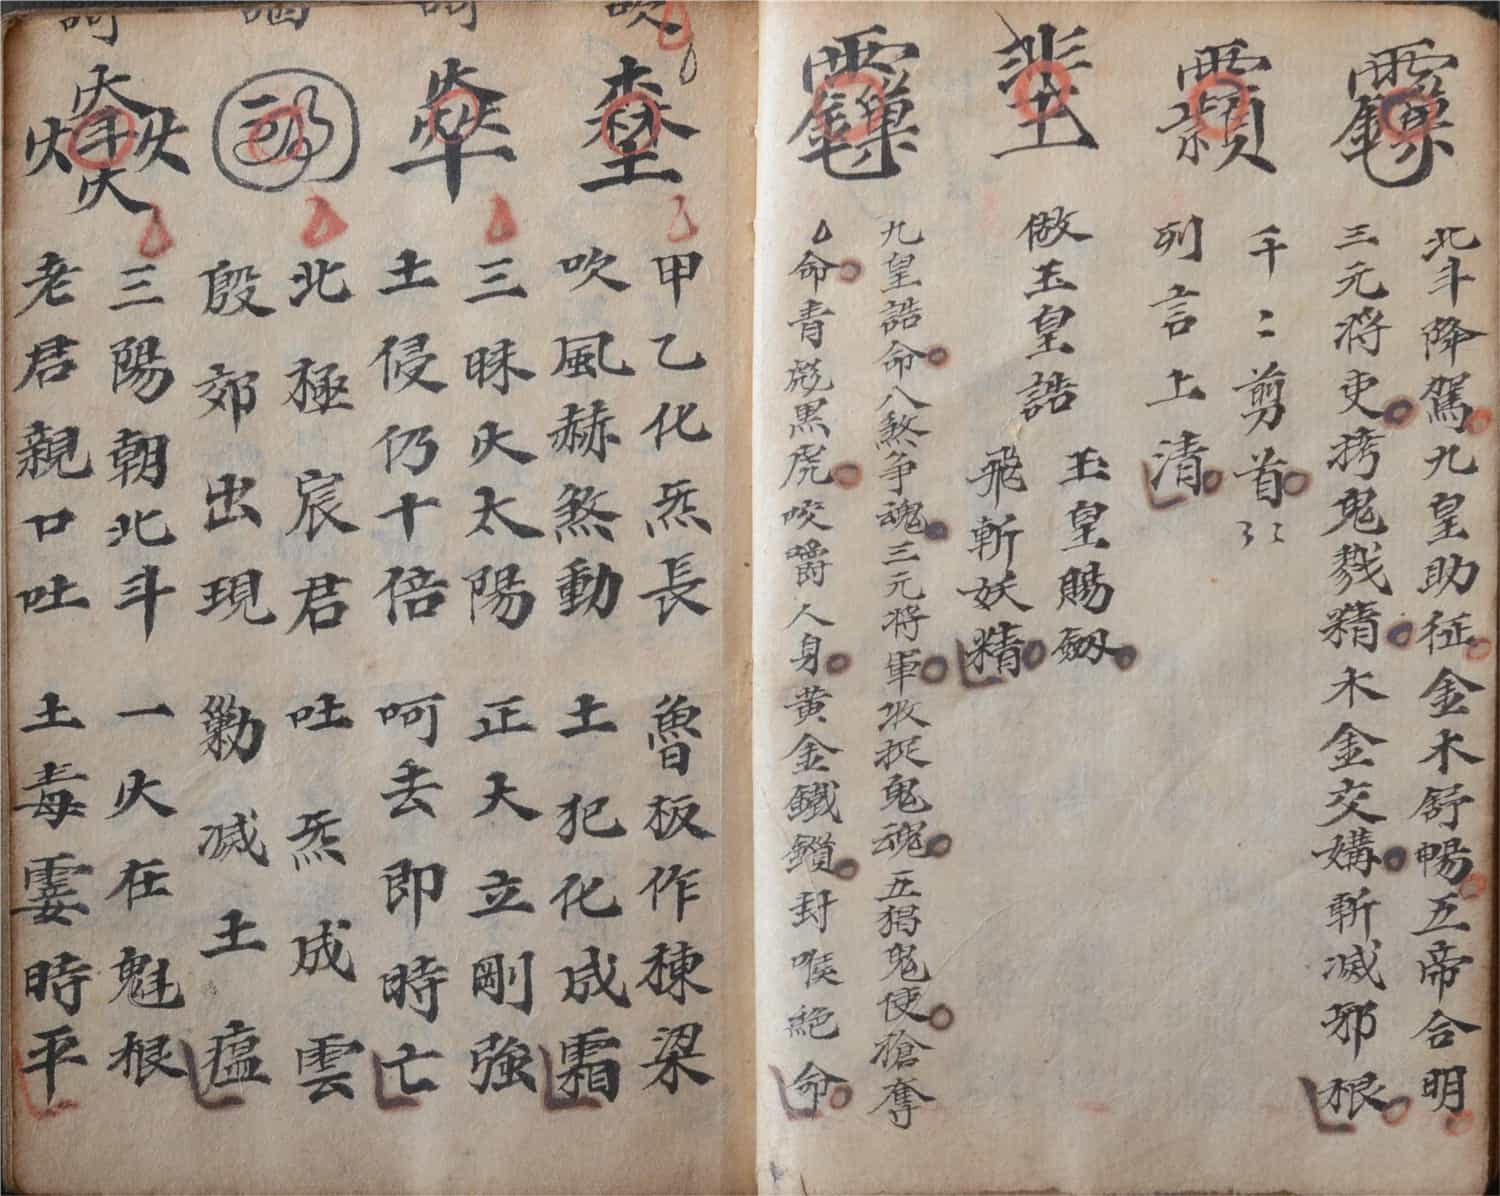 北斗降駕九皇助征金木舒暢五帝合明
三元将吏拷鬼戮精木金交媾斬滅邪根
千二剪首
列言上清
做玉皇誥
玉皇賜劔
飛斬妖精
九皇誥命八煞争魂三元将軍收捉鬼魂五猖鬼使搶奪
命青彪黑虎咬嚼人身黄金鐵鎖封喉絶命
吹
甲乙化炁長 魯板作棟梁
吹風赫煞動 土犯化成霜
呵
三昧火太陽 正大立剛強
土侵仍十倍 呵去即時亡
北極宸君 吐炁成雲
殷郊出現 勦滅土瘟
呵
三陽朝北斗 一火在魁根
老君親口吐 土毒霎時平